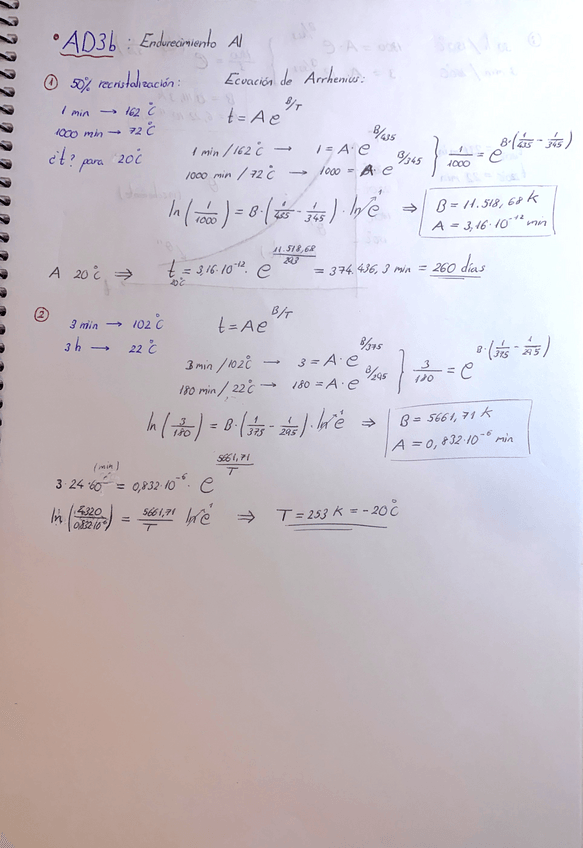 • AD3b : Endurecimiento Al
① 50% recristalización: Ecuación de Arrhenius:
1 min → 162 °C t = A e^(B/T)
1000 min → 72 °C
¿t? para 20°C
1 min / 162 °C → 1 = A · e^(B/435)
1000 min / 72 °C → 1000 = A · e^(B/345) } 1/1000 = e^(B·(1/435 - 1/345))
ln(1/1000) = B · (1/435 - 1/345) · ln e^1 ⇒ B = 11.518,68 K
A = 3,16·10^-12 min
A 20°C ⇒ t_20°C = 3,16·10^-12 · e^(11.518,68/293) = 374.436,3 min = 260 días
②
3 min → 102 °C t = A e^(B/T)
3 h → 22 °C
3 min / 102°C → 3 = A · e^(B/375)
180 min / 22°C → 180 = A · e^(B/295) } 3/180 = e^(B·(1/375 - 1/295))
ln(3/180) = B · (1/375 - 1/295) · ln e^1 ⇒ B = 5661,71 K
A = 0,832·10^-6 min
(min)
3 · 24 · 60 = 0,832·10^-6 · e^(5661,71/T)
ln(4320/0,832·10^-6) = 5661,71/T ln e^1 ⇒ T = 253 K = -20 °C